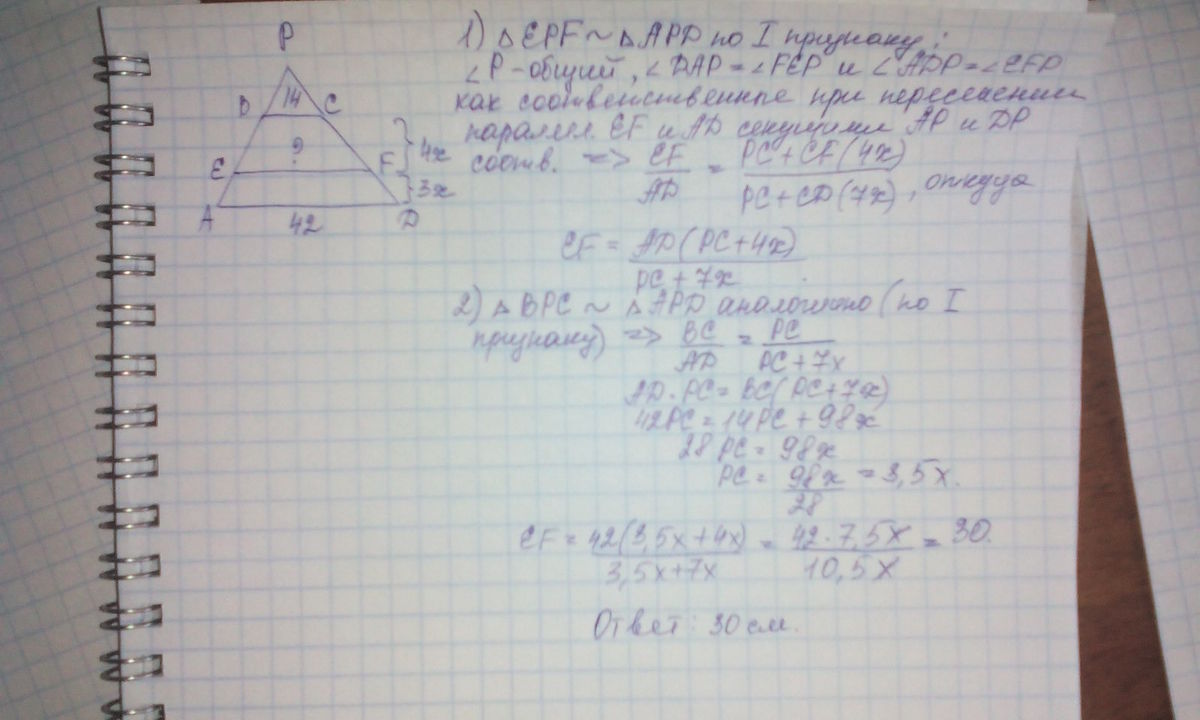 P
B 14 C
E ? F 4x
3x
A 42 D
1) △EPF ~ △APD по I признаку:
∠P - общий, ∠DAP = ∠FEP и ∠ADP = ∠EFP
как соответственные при пересечении
паралел. EF и AD секущими AP и DP
соотв. => EF/AD = PC + CF(4x)/PC + CD(7x), откуда
EF = AD(PC+4x)/PC + 7x
2) △BPC ~ △APD аналогично (по I
признаку) => BC/AD = PC/PC + 7x
AD · PC = BC(PC+7x)
42PC = 14PC + 98x
28PC = 98x
PC = 98x/28 = 3,5x.
EF = 42(3,5x+4x)/3,5x+7x = 42·7,5x/10,5x = 30.
Ответ: 30 см.